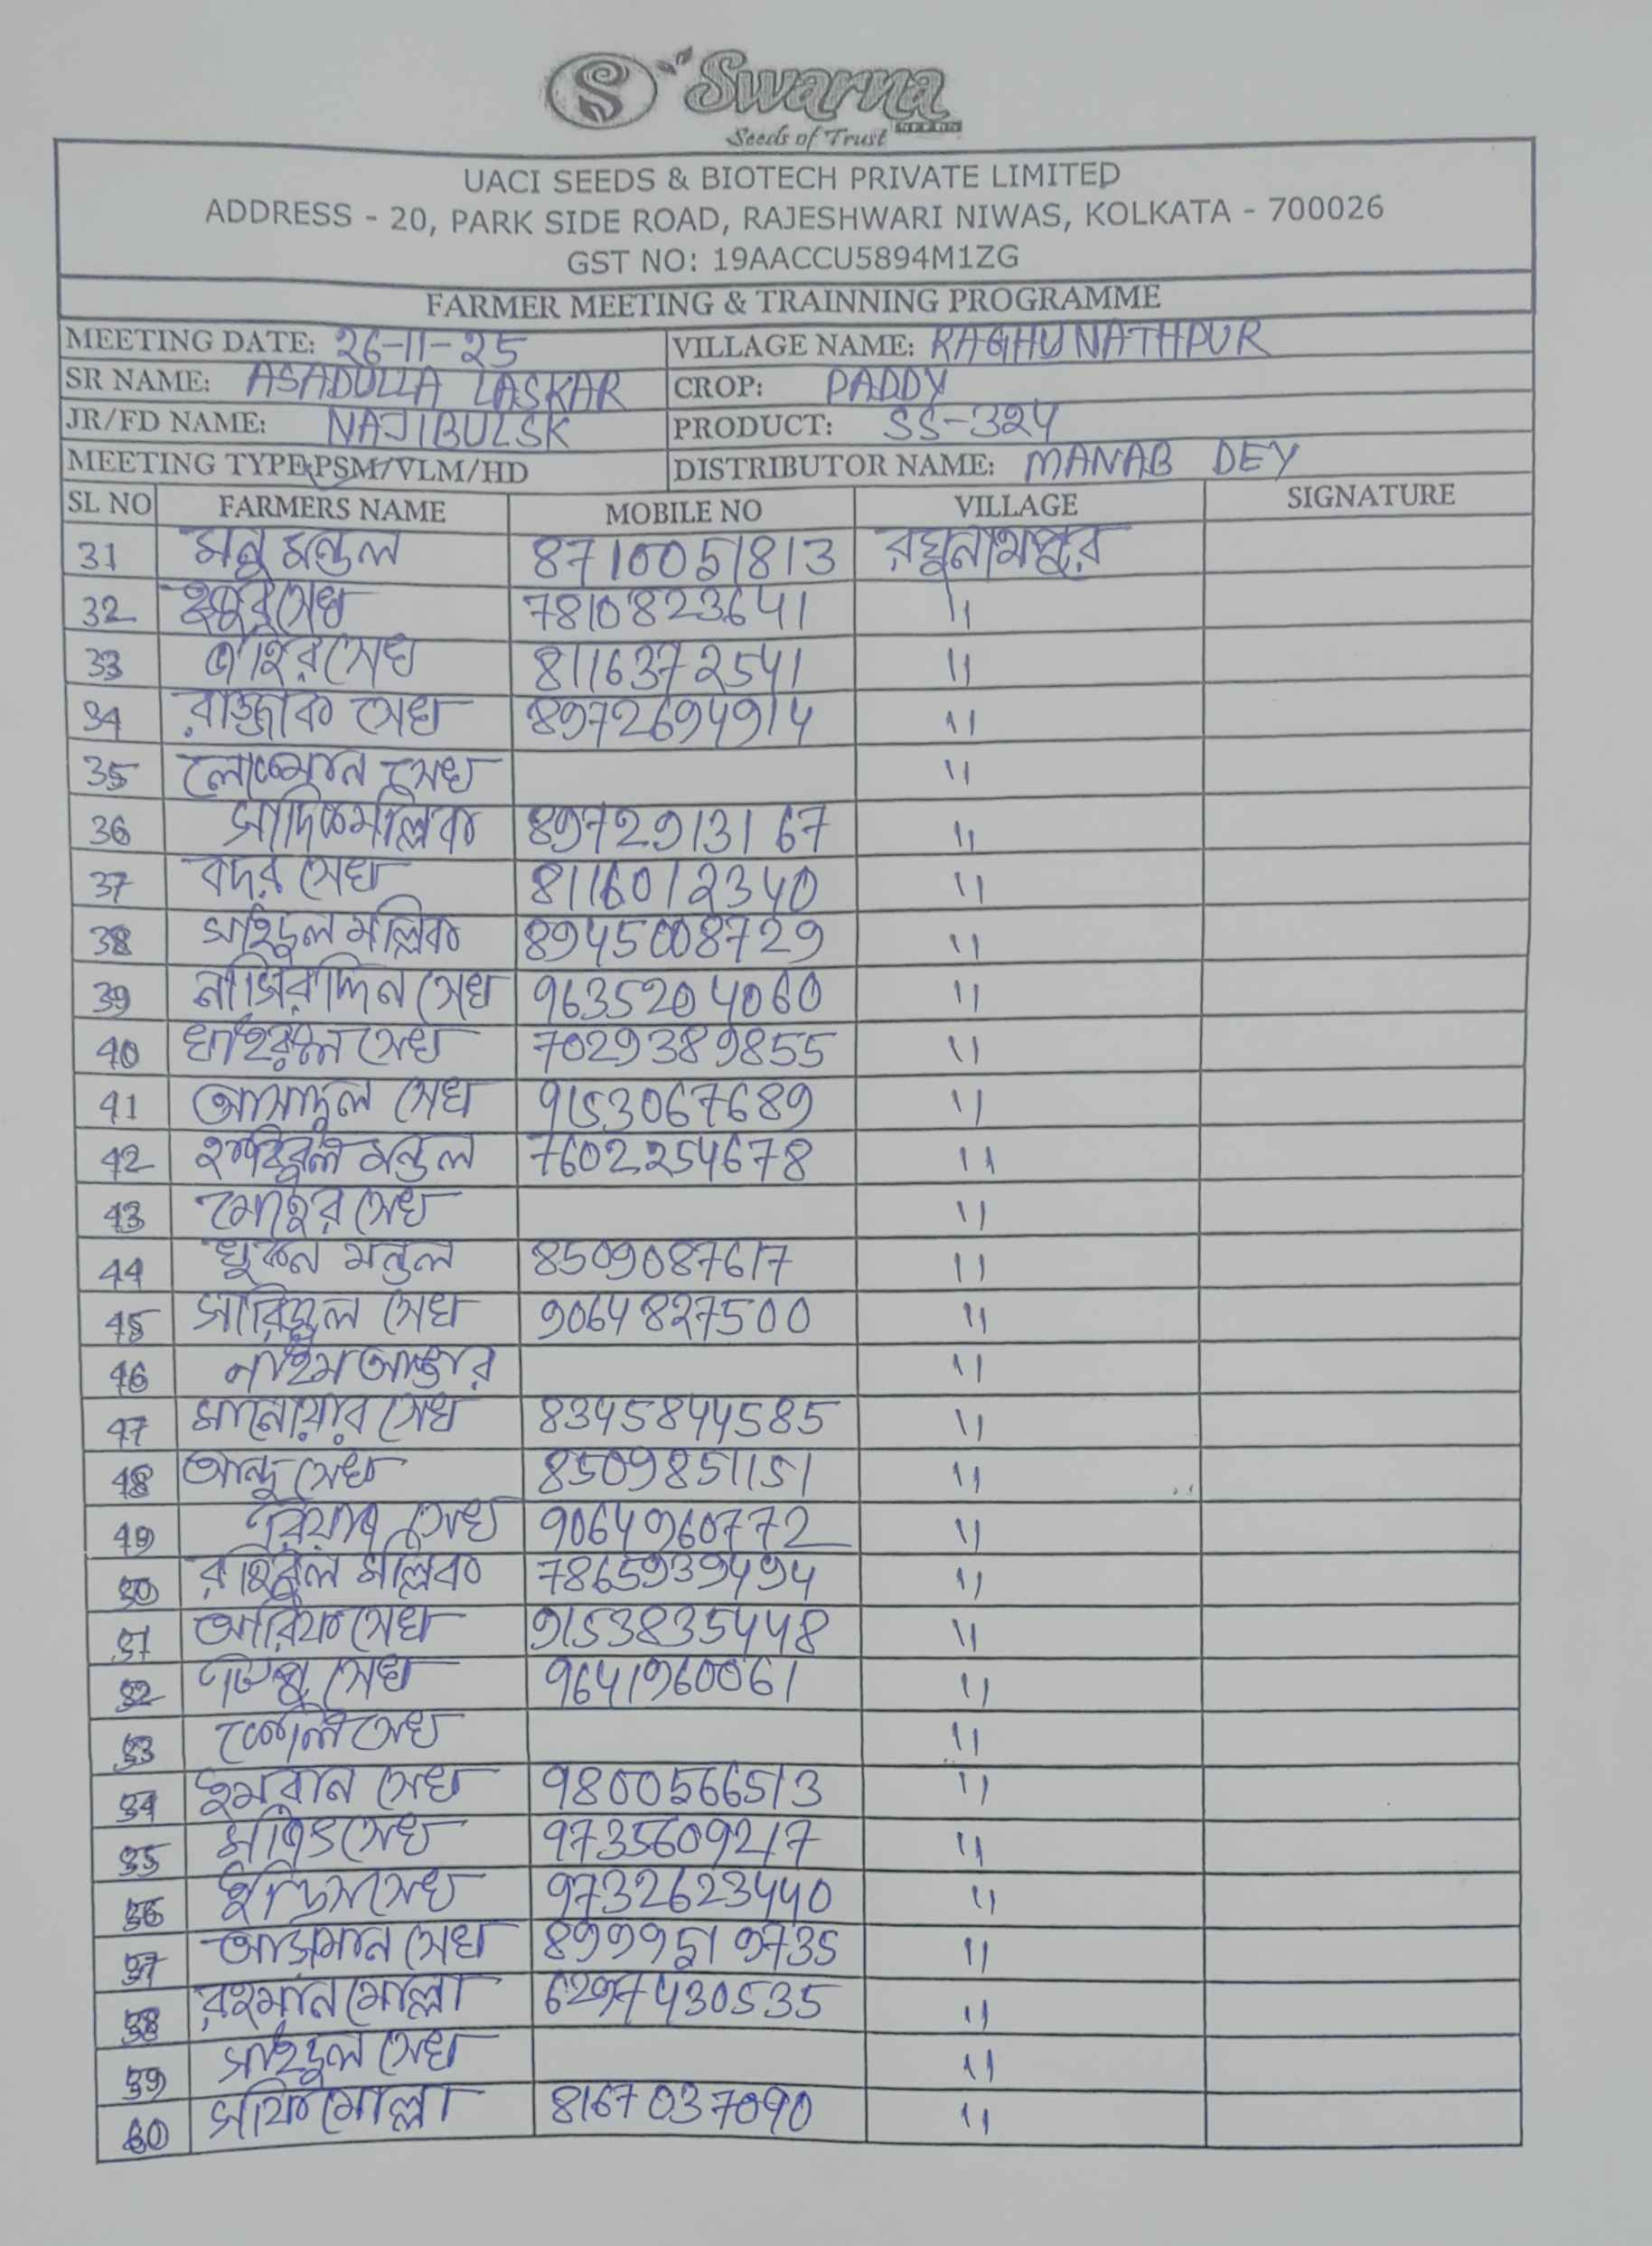 Swarna
Seeds of Trust
UACI SEEDS & BIOTECH PRIVATE LIMITED
ADDRESS - 20, PARK SIDE ROAD, RAJESHWARI NIWAS, KOLKATA - 700026
GST NO: 19AACCU5894M1ZG
FARMER MEETING & TRAINNING PROGRAMME
MEETING DATE: 26-11-25 VILLAGE NAME: RAGHUNATHPUR
SR NAME: ASADULLA LASKAR CROP: PADDY
JR/FD NAME: NAJIBUL SK PRODUCT: SS-324
MEETING TYPE: PSM/VLM/HD DISTRIBUTOR NAME: MANAB DEY
SL NO FARMERS NAME MOBILE NO VILLAGE SIGNATURE
31 মনু মন্ডল 8710051813 রঘুনাথপুর
32 সেখ 7810823641 "
33 জাহির সেখ 8116372541 "
34 রাজ্জাক সেখ 8972694914 "
35 লোকমান সেখ "
36 সাদিক মল্লিক 8972913167 "
37 বদর সেখ 8116012340 "
38 সাইদুল মল্লিক 8945008729 "
39 নাসিরুদ্দিন সেখ 9635204060 "
40 খাইরুল সেখ 7029389855 "
41 আসাদুল সেখ 9153067689 "
42 মন্ডল 7602254678 "
43 সেখ "
44 খুকন মন্ডল 8509087617 "
45 সারিফুল সেখ 9064827500 "
46 নাইম আক্তার "
47 মানোয়ার সেখ 8345844585 "
48 আন্দু সেখ 8509851151 "
49 সেখ 9064960772 "
50 রহিবুল মল্লিক 7865939494 "
51 আরিফ সেখ 9153835448 "
52 সেখ 9641960061 "
53 সেখ "
54 ইমরান সেখ 9800566513 "
55 সেখ 9735609217 "
56 সেখ 9732623440 "
57 আসমান সেখ 8999519735 "
58 রহমান মোল্লা 6297430535 "
59 সাইদুল সেখ "
60 সফি মোল্লা 8167037090 "